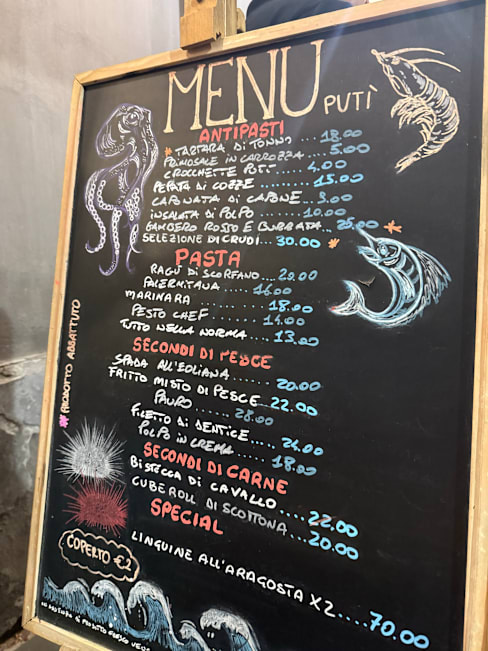 MENU PUTÌ
ANTIPASTI
* TARTARA DI TONNO ... 18.00
PRIMOSALE IN CARROZZA ... 5.00
CROCCHETTE POTT ... 4.00
PEPATA DI COZZE ....... 15.00
CAPONATA DI CAPONE ... 9.00
INSALATA DI POLPO ....... 10.00
GAMBERO ROSSO E BURRATA ... 25.00 *
SELEZIONE DI CRUDI .... 30.00 *
PASTA
RAGU DI SCORFANO .... 20.00
PALERMITANA ..... 16.00
MARINARA ........ 18.00
PESTO CHEF ...... 14.00
TUTTO NELLA NORMA .... 13.00
SECONDI DI PESCE
SPADA ALL'EOLIANA ....... 20.00
FRITTO MISTO DI PESCE 22.00
PAURO ...... 28.00
FILETTO DI DENTICE .... 24.00
POLPO IN CREMA ..... 18.00
SECONDI DI CARNE
BISTECCA DI CAVALLO .... 22.00
CUBE ROLL DI SCOTTONA ... 20.00
SPECIAL
LINGUINE ALL'ARAGOSTA X2 .... 70.00
* PRODOTTO ABBATTUTO
COPERTO €2